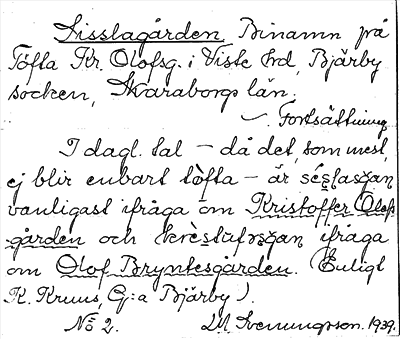 Sisslagården, Binamn på
Töfta Kr. Olofsg. i Viste hrd, Bjärby
socken, Skaraborgs län.
Fortsättning
I dagl. tal – då det, som mest,
ej blir enbart tòfta – är
vanligast ifråga om Kristoffer Olofs-
gården och ifråga
om Olof Bryntesgården. (Enligt
K. Kruus, G:a Bjärby).
No 2. Svenungsson. 1939.